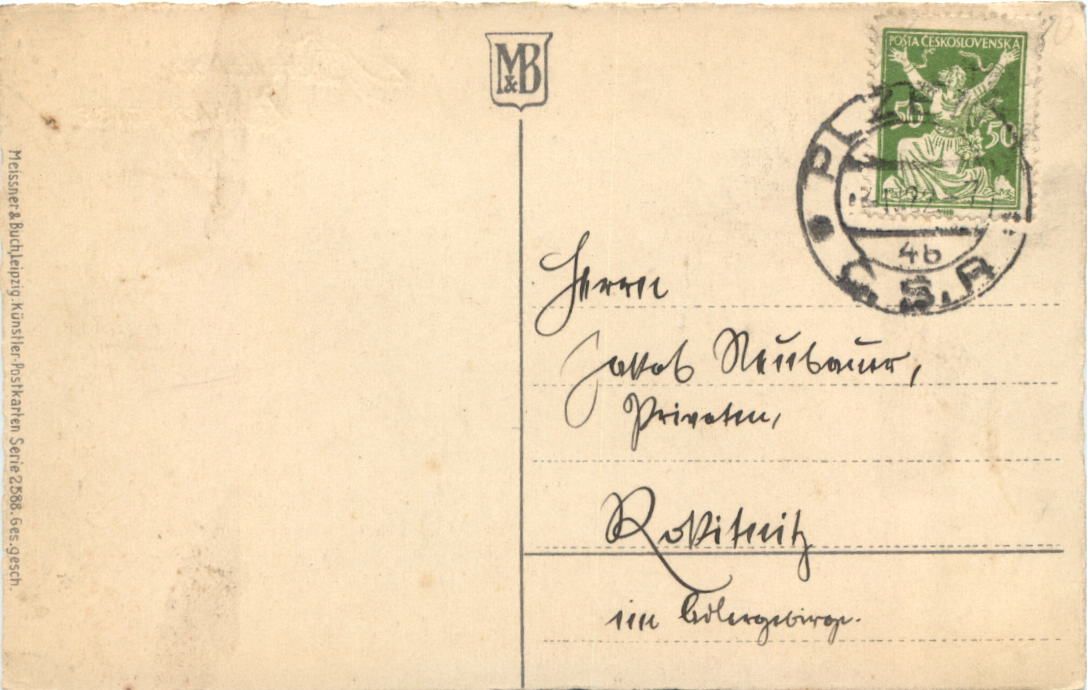 M&B
POŠTA ČESKOSLOVENSKÁ
50 50
PLZEŇ
22
4b
Č.S.R.
Meissner & Buch, Leipzig. Künstler-Postkarten Serie 2588. Ges. gesch.
Herrn
Jakob Neubauer,
Privaten,
Rokitnitz
im Adlergebirge.